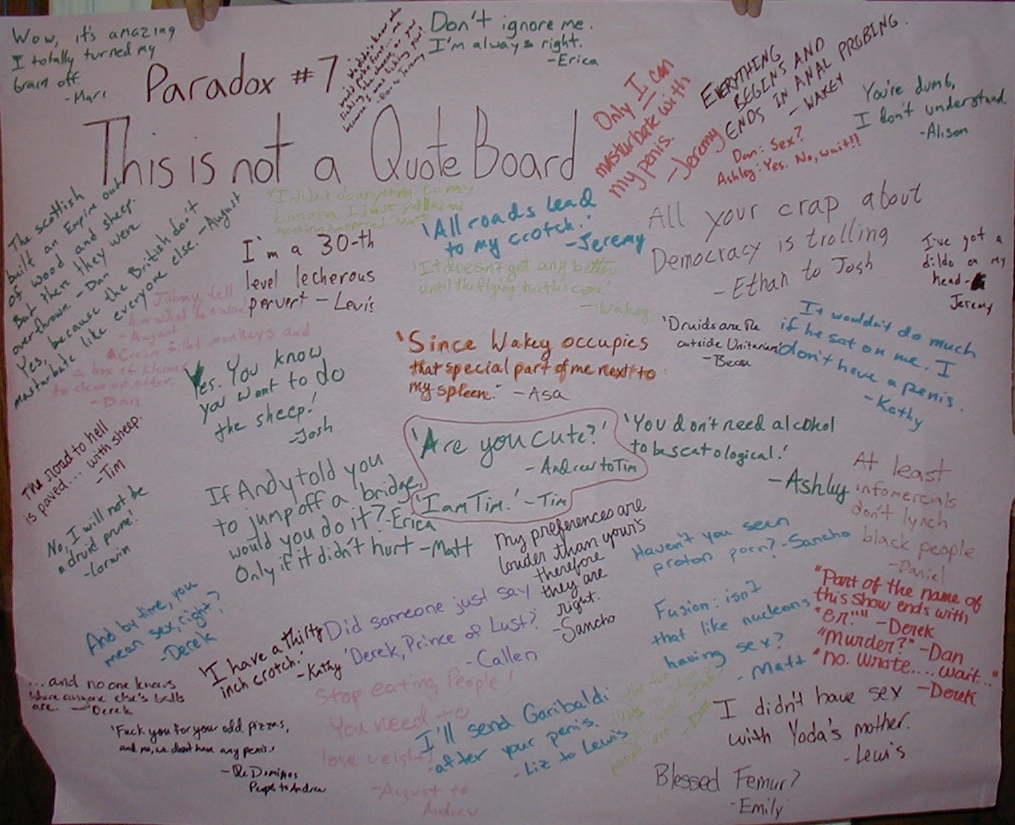 Wow, it's amazing
I totally turned my
brain off.
-Marc
Paradox #7
This is not a Quote Board
Don't ignore me.
I'm always right.
-Erica
Only I can
masturbate with
my penis.
-Jeremy
EVERYTHING
BEGINS AND
ENDS IN ANAL PROBING.
- WAKEY
Dan: Sex?
Ashley: Yes. No, wait!!
You're dumb,
I don't understand.
-Alison
The scottish
built an Empire out
of wood and sheep.
But then they were
overthrown. -Dan
Yes, because the British don't
masturbate like everyone else. -August
"I didn't do anything to my
banana
I'm a 30-th
level lecherous
pervert - Lewis
'All roads lead
to my crotch.'
-Jeremy
'It doesn't get any better
until the flying turtles come'
-Wakey
All your crap about
Democracy is trolling
- Ethan to Josh
I've got a
dildo on my
head-
Jeremy
Johny, tell
him what he's won!
-August
Cream filled monkeys and
a box of kleenex
to clean up after.
-Dan
Yes. You know
you want to do
the sheep!
-Josh
'Since Wakey occupies
that special part of me next to
my spleen.' -Asa
'Druids are the
outside Unitarians'
-Becca
It wouldn't do much
if he sat on me. I
don't have a penis.
-Kathy
The road to hell
is paved... with sheep.
-Tim
'Are you cute?'
-Andrew to Tim
'I am Tim.' -Tim
'You don't need alcohol
to be scatological.'
-Ashley
At least
infomercials
don't lynch
black people
-Daniel
No, I will not be
a druid prune!
-Lorwin
If Andy told you
to jump off a bridge,
would you do it? -Erica
Only if it didn't hurt -Matt
My preferences are
louder than yours
therefore
they are
right.
-Sancho
Haven't you seen
proton porn? -Sancho
Fusion: isn't
that like nucleons
having sex?
-Matt
"Part of the name of
this show ends with
"er."" -Derek
"Murder?" -Dan
"No. Wrote.... wait..."
-Derek
And by time, you
mean sex, right?
-Derek
'I have a thirty
inch crotch.'
-Kathy
Did someone just say
'Derek, Prince of Lust?'
-Callen
...and no one knows
where anyone else's balls
are. -Derek
'Fuck you for your odd pizzas,
and no, we don't have any penis!'
-The Dominos
People to Andrew
Stop eating, People!
You need to
lose weight!
-August to
Andrew
I'll send Garibaldi
after your penis.
-Liz to Lewis
I didn't have sex
with Yoda's mother.
-Lewis
Blessed Femur?
-Emily